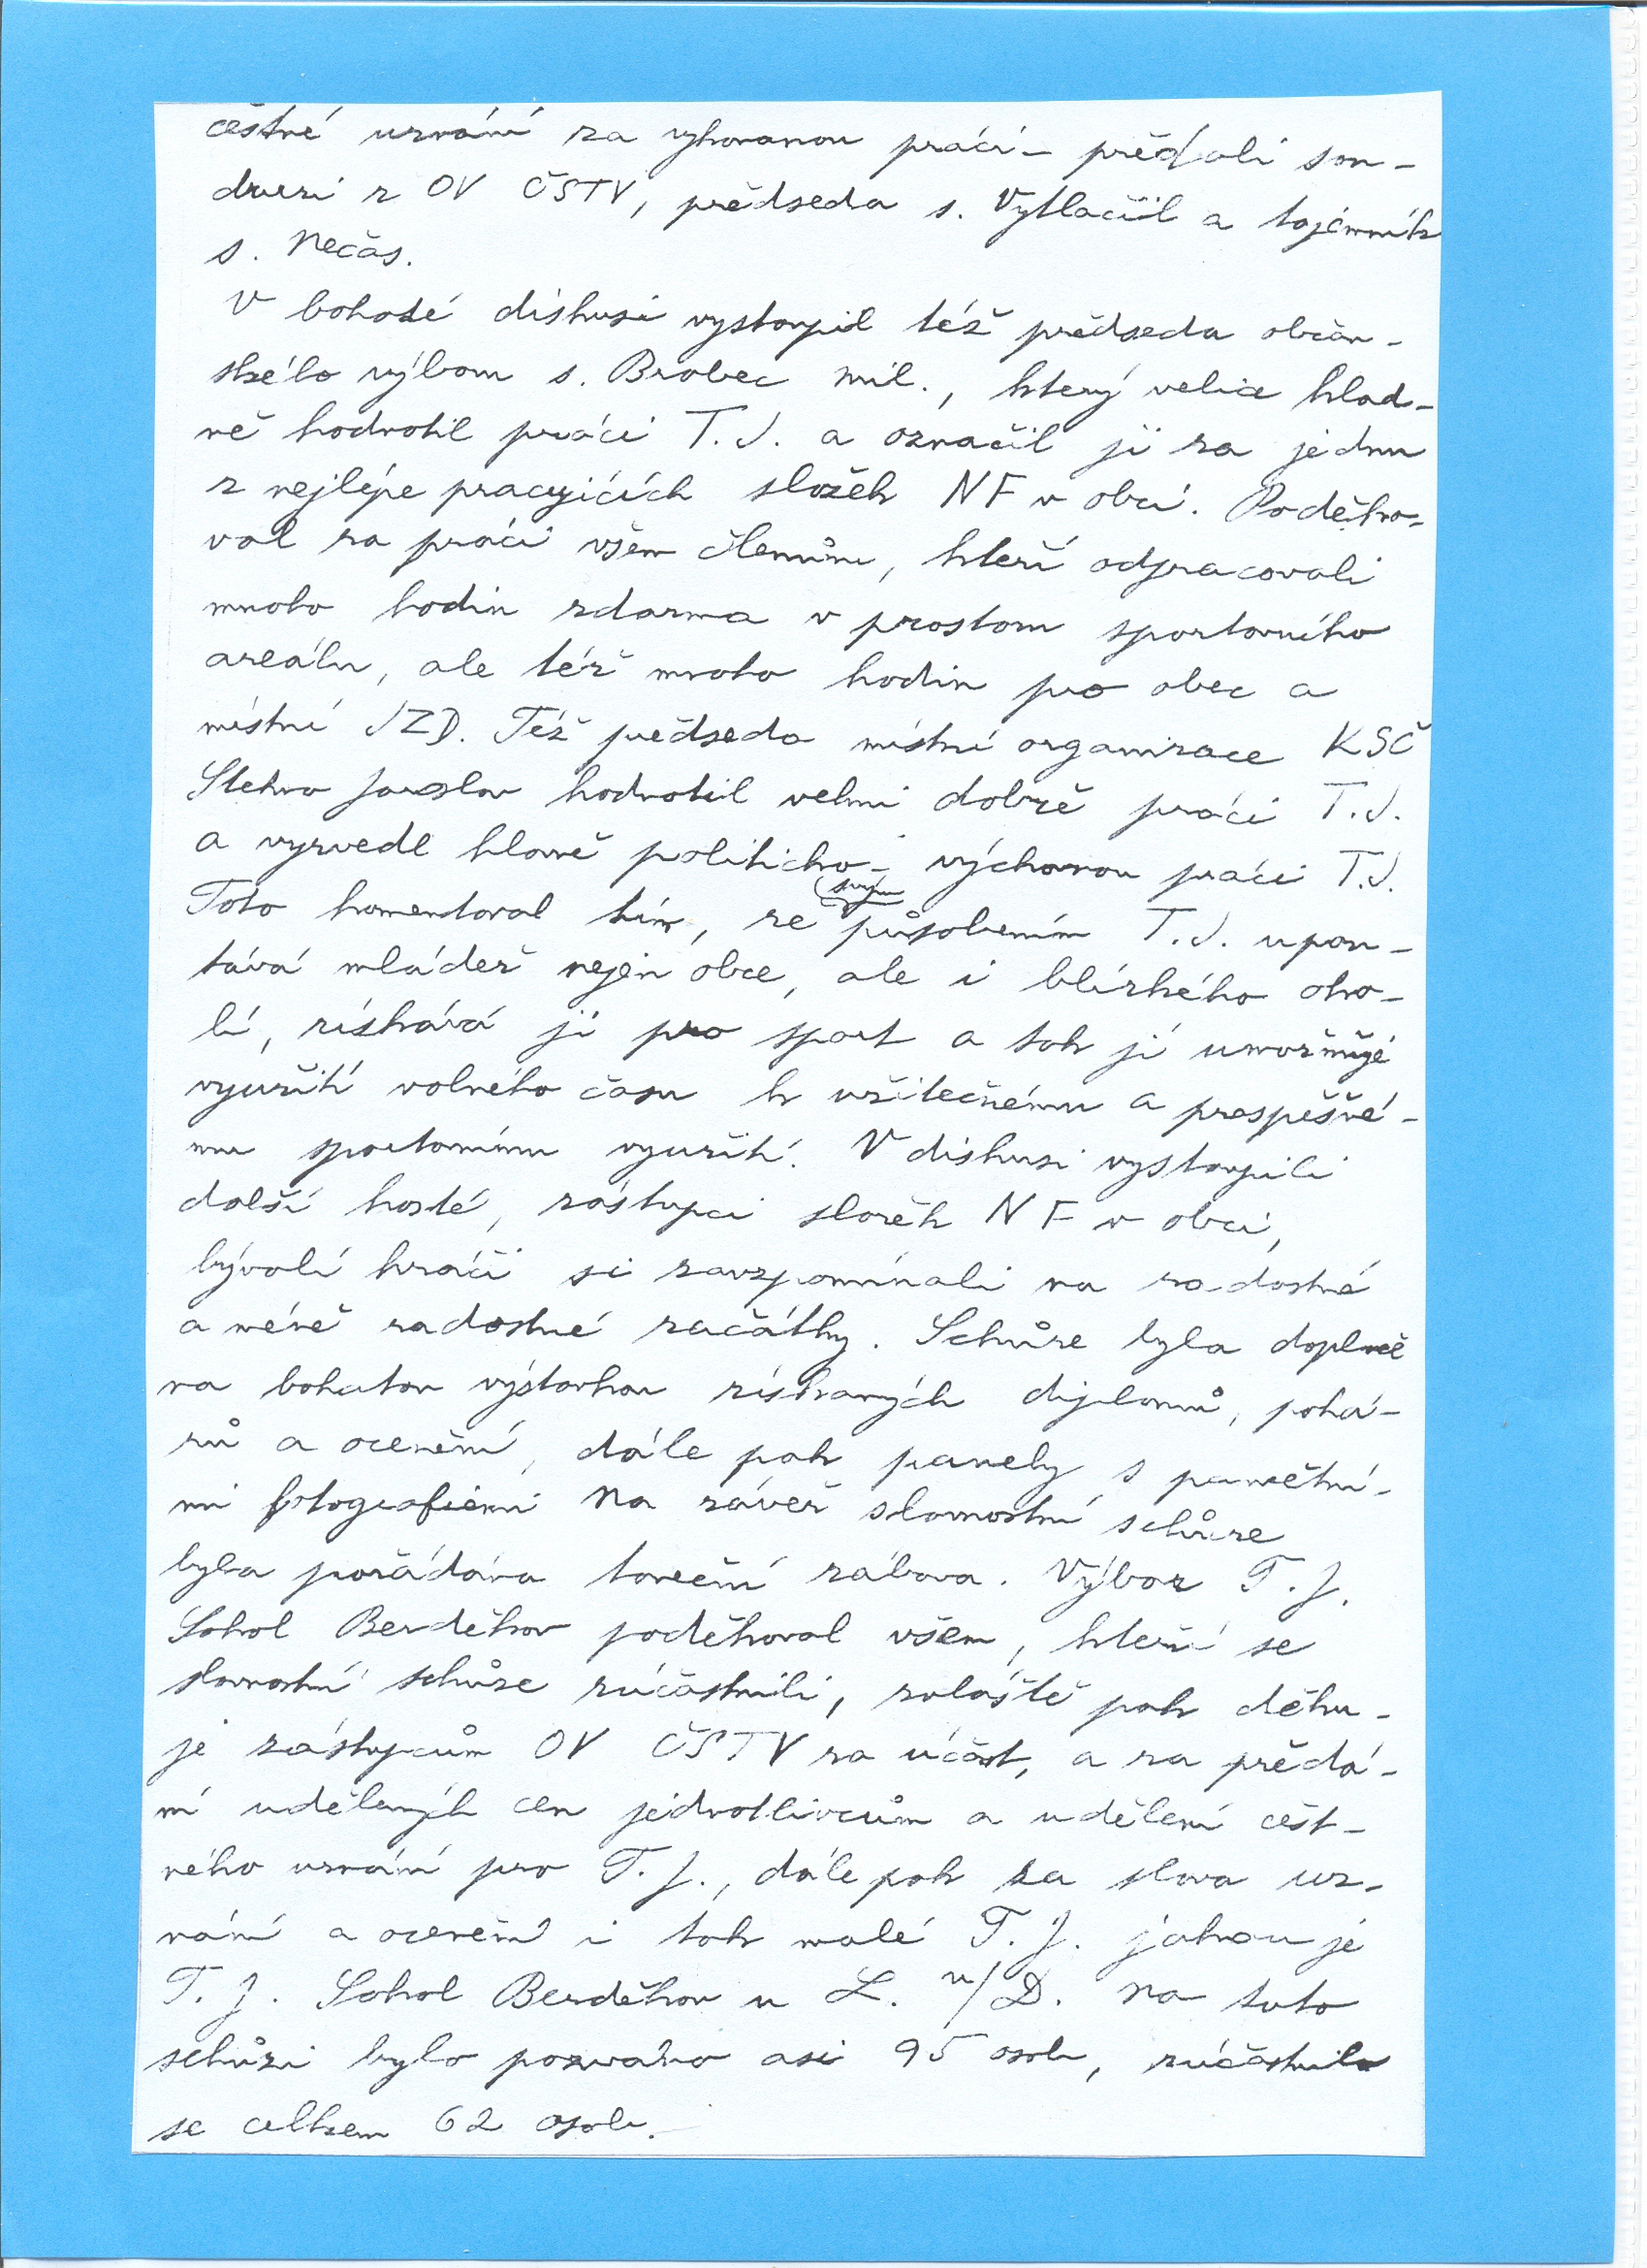 čestné uznání za vykonanou práci - předali sou-
druzi z OV ČSTV, předseda s. Vytlačil a tajemník
s. Nečas.
V bohaté diskusi vystoupil též předseda občan-
ského výboru s. Brabec Mil., který velice klad-
ně hodnotil práci T.J. a označil ji za jednu
z nejlépe pracujících složek NF v obci. Poděko-
val za práci všem členům, kteří odpracovali
mnoho hodin zdarma v prostoru sportovního
areálu, ale též mnoho hodin pro obec a
místní JZD. Též předseda místní organizace KSČ
Stehno Jaroslav hodnotil velmi dobře práci T.J.
a vyzvedl hlavně politicko - výchovnou práci T.J.
Toto komentoval tím, že svým působením T.J. upou-
tává mládež nejen obce, ale i blízkého oko-
lí, získává ji pro sport a tak jí umožňuje
využití volného času k užitečnému a prospěšné-
mu sportovnímu využití. V diskusi vystoupili
další hosté, zástupci složek NF v obci,
bývalí hráči si zavzpomínali na radostné
a méně radostné začátky. Schůze byla doplně
na bohatou výstavkou získaných diplomů, pohá-
rů a ocenění, dále pak panely s pamětní-
mi fotografiemi Na závěr slavnostní schůze
byla pořádána taneční zábava. Výbor T.J.
Sokol Berděkov poděkoval všem, kteří se
slavnostní schůze zúčastnili, zvláště pak děku-
je zástupcům OV ČSTV za účast, a za předá-
ní udělených cen jednotlivcům a udělení čest-
ného uznání pro T.J., dále pak za slova uz-
nání a ocenění i tak malé T.J. jakou je
T.J. Sokol Berděkov u L. n/D. Na tuto
schůzi bylo pozváno asi 95 osob, zúčastnilo
se celkem 62 osob.